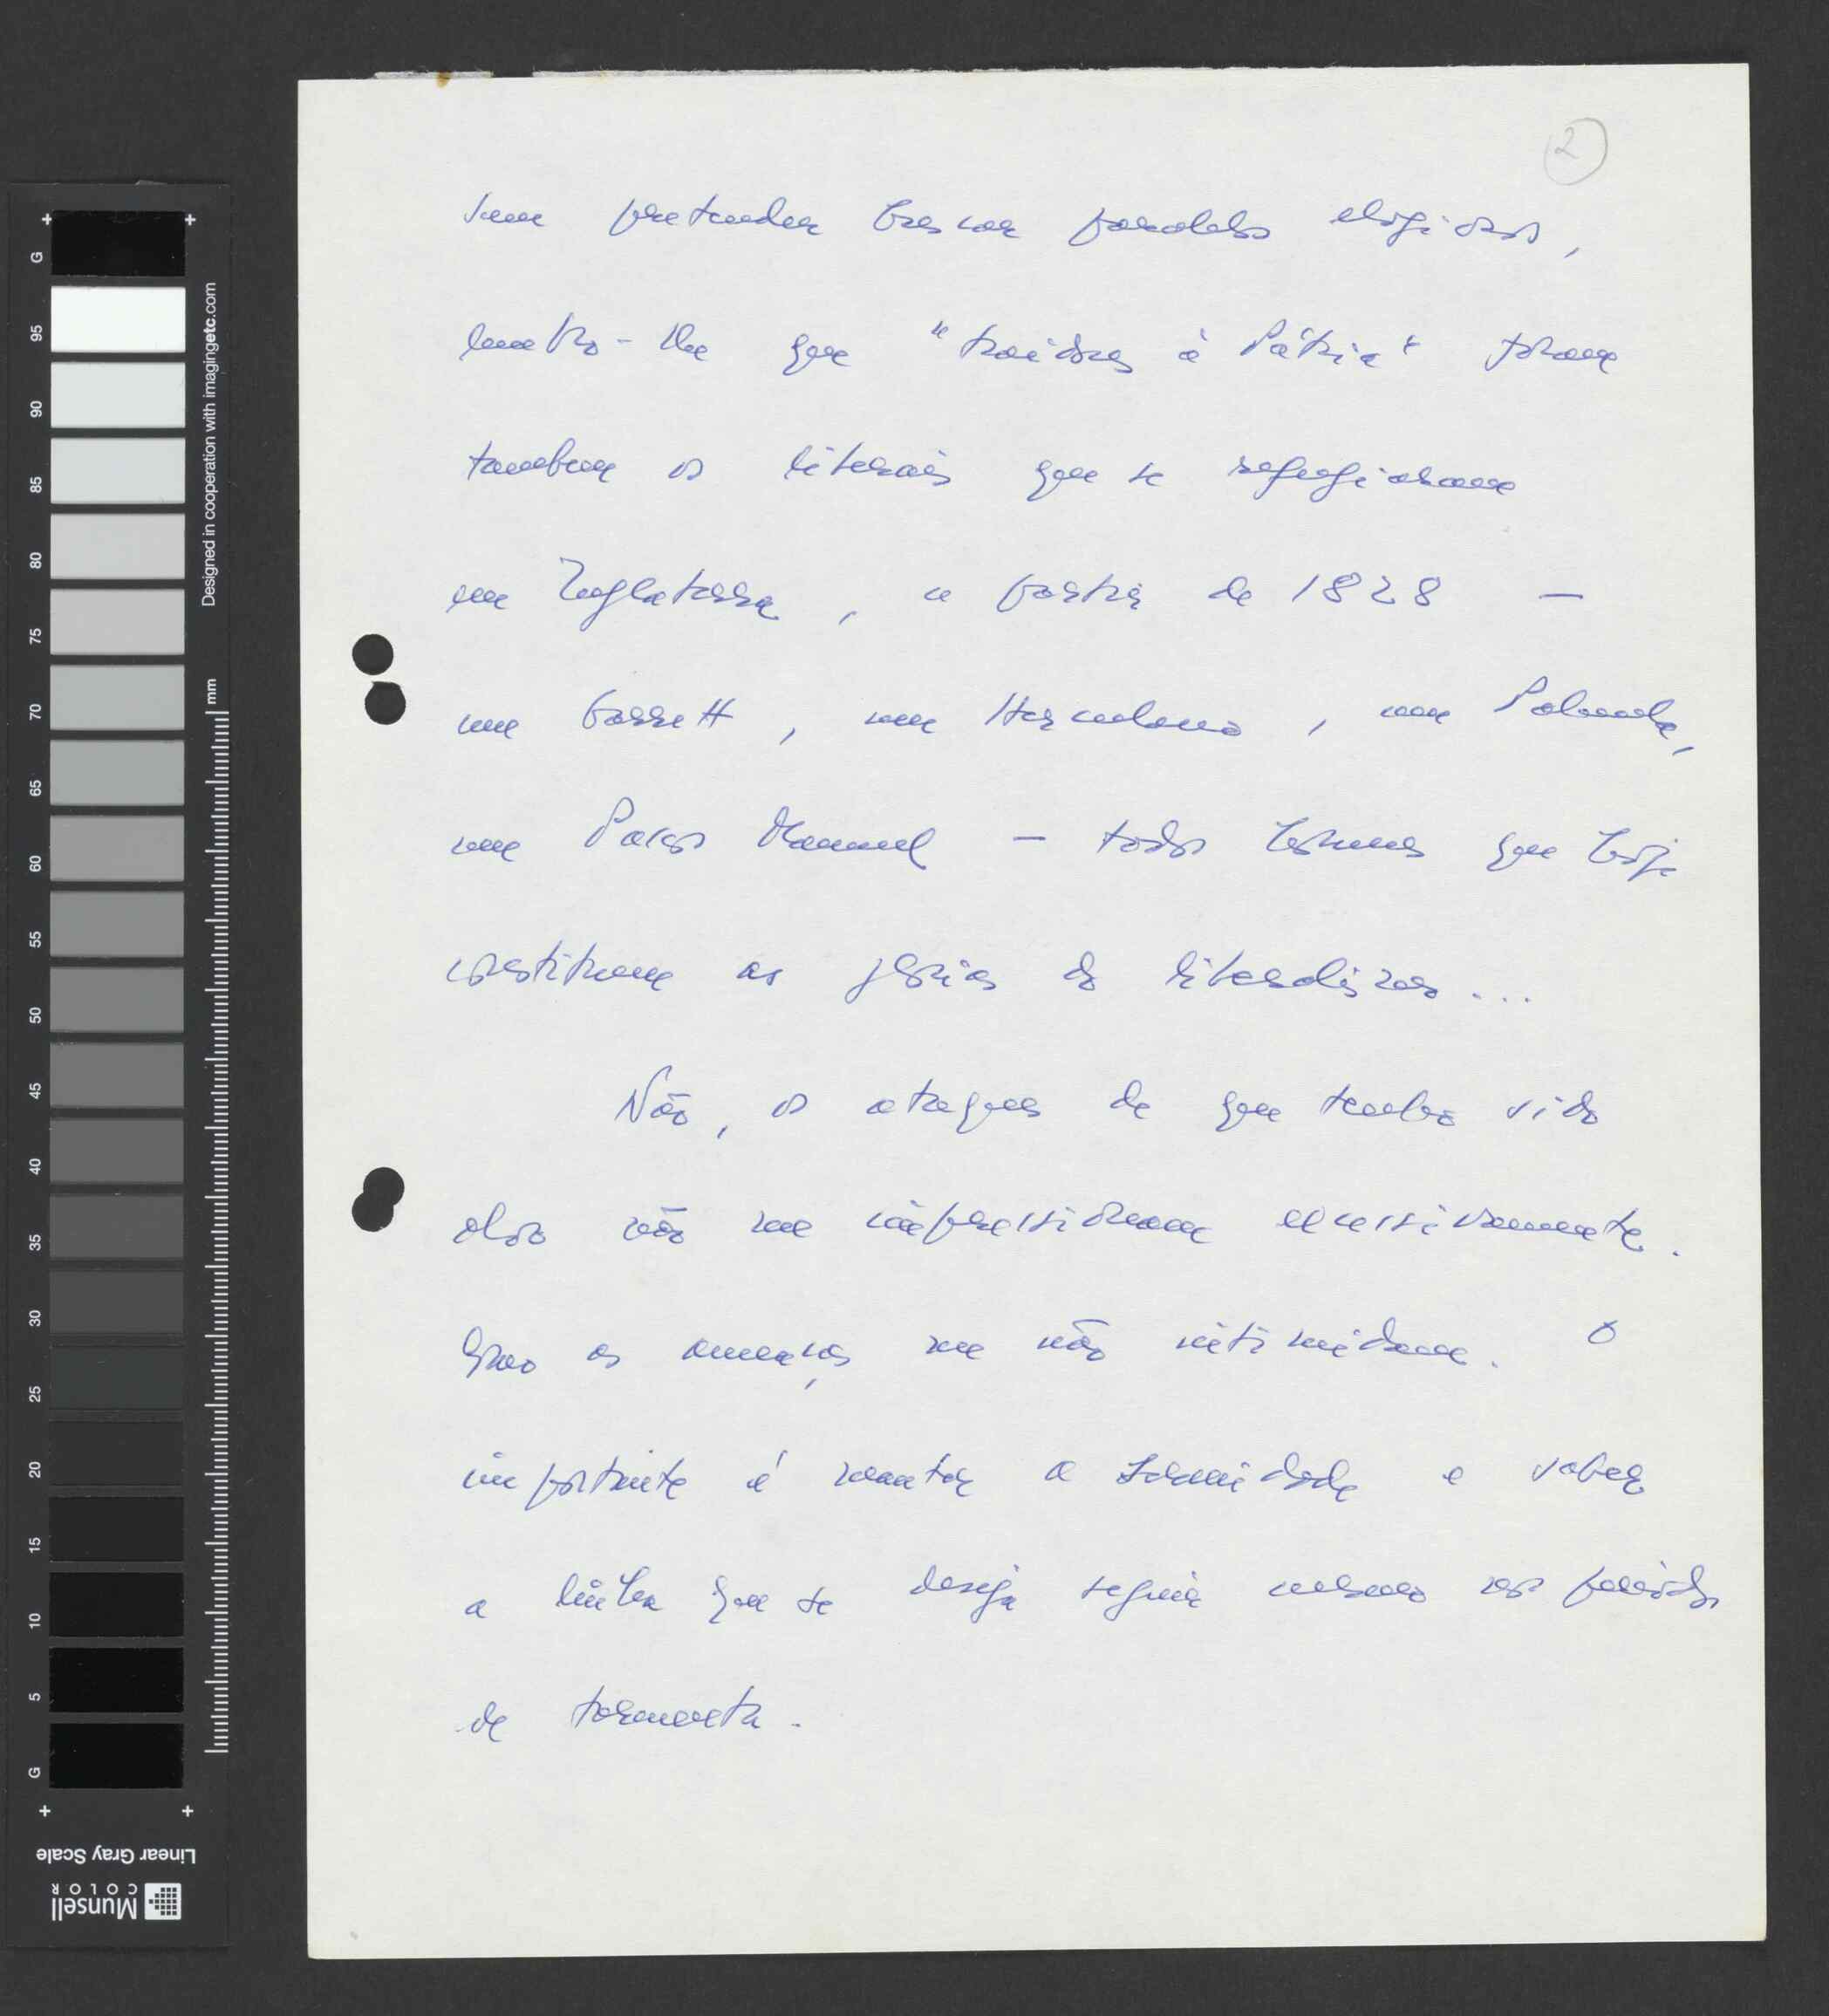 2
sem pretender buscar paralelos elogiosos,
lembro-lhe que "traidores à Pátria" foram
tambem os liberais que se refugiaram
em Inglaterra, a partir de 1828 —
um Garrett, um Herculano, um Palmela,
um Passos Manuel — todos homens que hoje
constituem as glórias do liberalismo...
Não, os ataques de que tenho sido
alvo não me impressionam excessivamente.
as ameaças me não intimidam. O
importante é manter a serenidade e saber
a linha que se deseja seguir mesmo nos períodos
de tormenta.
G
95
90
85
80
75
70
65
60
55
50
45
40
35
30
25
20
15
10
5
G
Designed in cooperation with imagingetc.com
mm
Linear Gray Scale
Munsell
COLOR